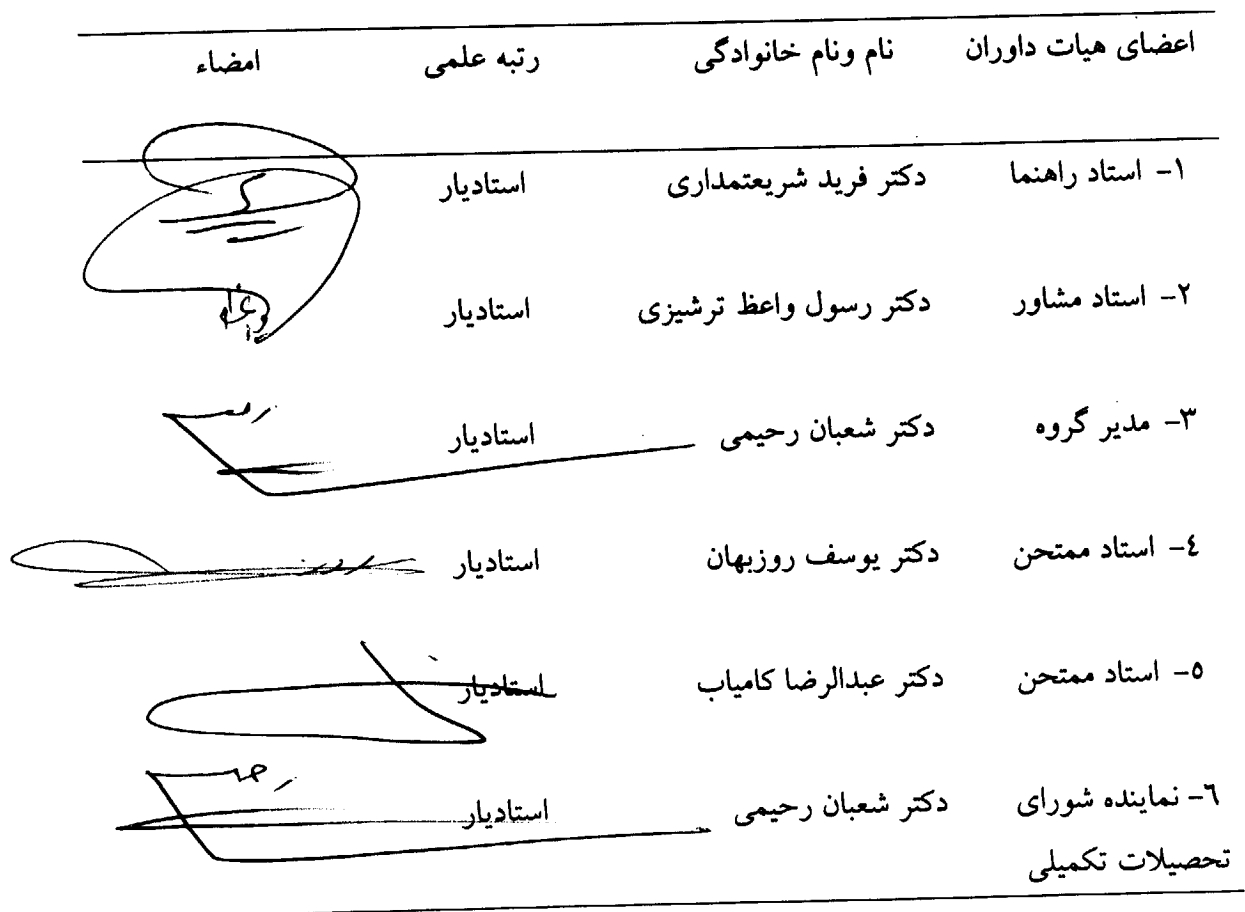 اعضای هیات داوران نام ونام خانوادگی رتبه علمی امضاء
۱- استاد راهنما دکتر فرید شریعتمداری استادیار
۲- استاد مشاور دکتر رسول واعظ ترشیزی استادیار
۳- مدیر گروه دکتر شعبان رحیمی استادیار
٤- استاد ممتحن دکتر یوسف روزبهان استادیار
۵- استاد ممتحن دکتر عبدالرضا کامیاب استادیار
٦- نماینده شورای دکتر شعبان رحیمی استادیار
تحصیلات تکمیلی